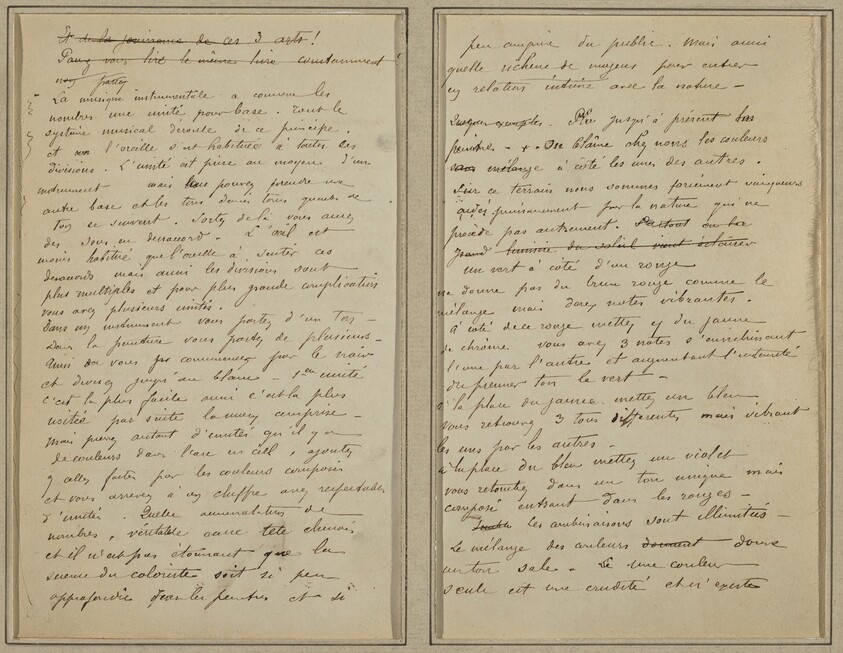 Et de la jouissance de ces 3 arts!
vous lire le même livre constamment
La musique instrumentale a comme les
nombres une unité pour base. Tout le
système musical découle de ce principe.
et l'oreille s'est habituée à toutes ces
divisions. L'unité est prise au moyen d'un
instrument mais vous pouvez prendre une
autre base et les tons demi tons quarts de
ton se suivent. Sortez de là vous avez
des sons en désaccord. L'œil est
moins habitué que l'oreille à sentir ces
désaccords mais aussi les divisions sont
plus multiples et pour plus grande complication
vous avez plusieurs unités.
Dans un instrument vous partez d'un ton -
Dans la peinture vous partez de plusieurs -
Ainsi vous commencez par le noir
et divisez jusqu'au blanc - 1ère unité
c'est la plus facile aussi c'est la plus
usitée par suite la mieux comprise -
mais prenez autant d'unités qu'il y a
de couleurs dans l'arc en ciel, ajoutez
y celles faites par les couleurs composées
et vous arrivez à un chiffre assez respectable
d'unités. Quelle accumulation de
nombres, véritable casse tête chinois
et il n'est pas étonnant que la
science du coloriste soit si peu
approfondie par les peintres et si
peu comprise du public. Mais aussi
quelle richesse de moyens pour entrer
en relation intime avec la nature -
Quelques exemples. jusqu'à présent
peintres - On blâme chez nous les couleurs
sans mélange à côté les unes des autres.
Sur ce terrain nous sommes forcément vainqueurs
aidés puissamment par la nature qui ne
procède pas autrement. Partout où la
grande lumière du soleil vient éclairer
un vert à côté d'un rouge
ne donne pas du brun rouge comme le
mélange mais deux notes vibrantes.
A côté de ce rouge mettez du jaune
de chrôme vous avez 3 notes s'enrichissant
l'une par l'autre et augmentant l'intensité
du premier ton le vert -
à la place du jaune mettez un bleu
vous retrouvez 3 tons différents mais vibrant
les uns par les autres -
à la place du bleu mettez un violet
vous retombez dans un ton unique mais
composé entrant dans les rouges -
Les combinaisons sont illimitées -
Le mélange des couleurs donnent donne
un ton sale - une couleur
seule est une crudité et n'existe